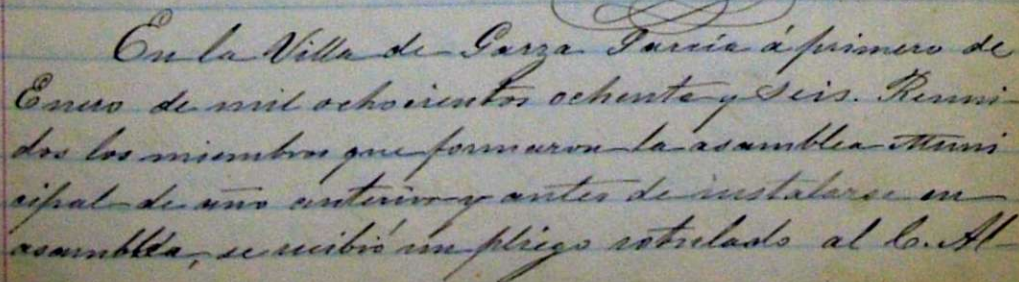 En la Villa de Garza Garcia á primero de
Enero de mil ochocientos ochenta y seis. Reuni-
dos los miembros que formaron la asamblea Muni
cipal de año anterior y antes de instalarse en
asamblea, se recibió un pliego rotulado al C. Al-